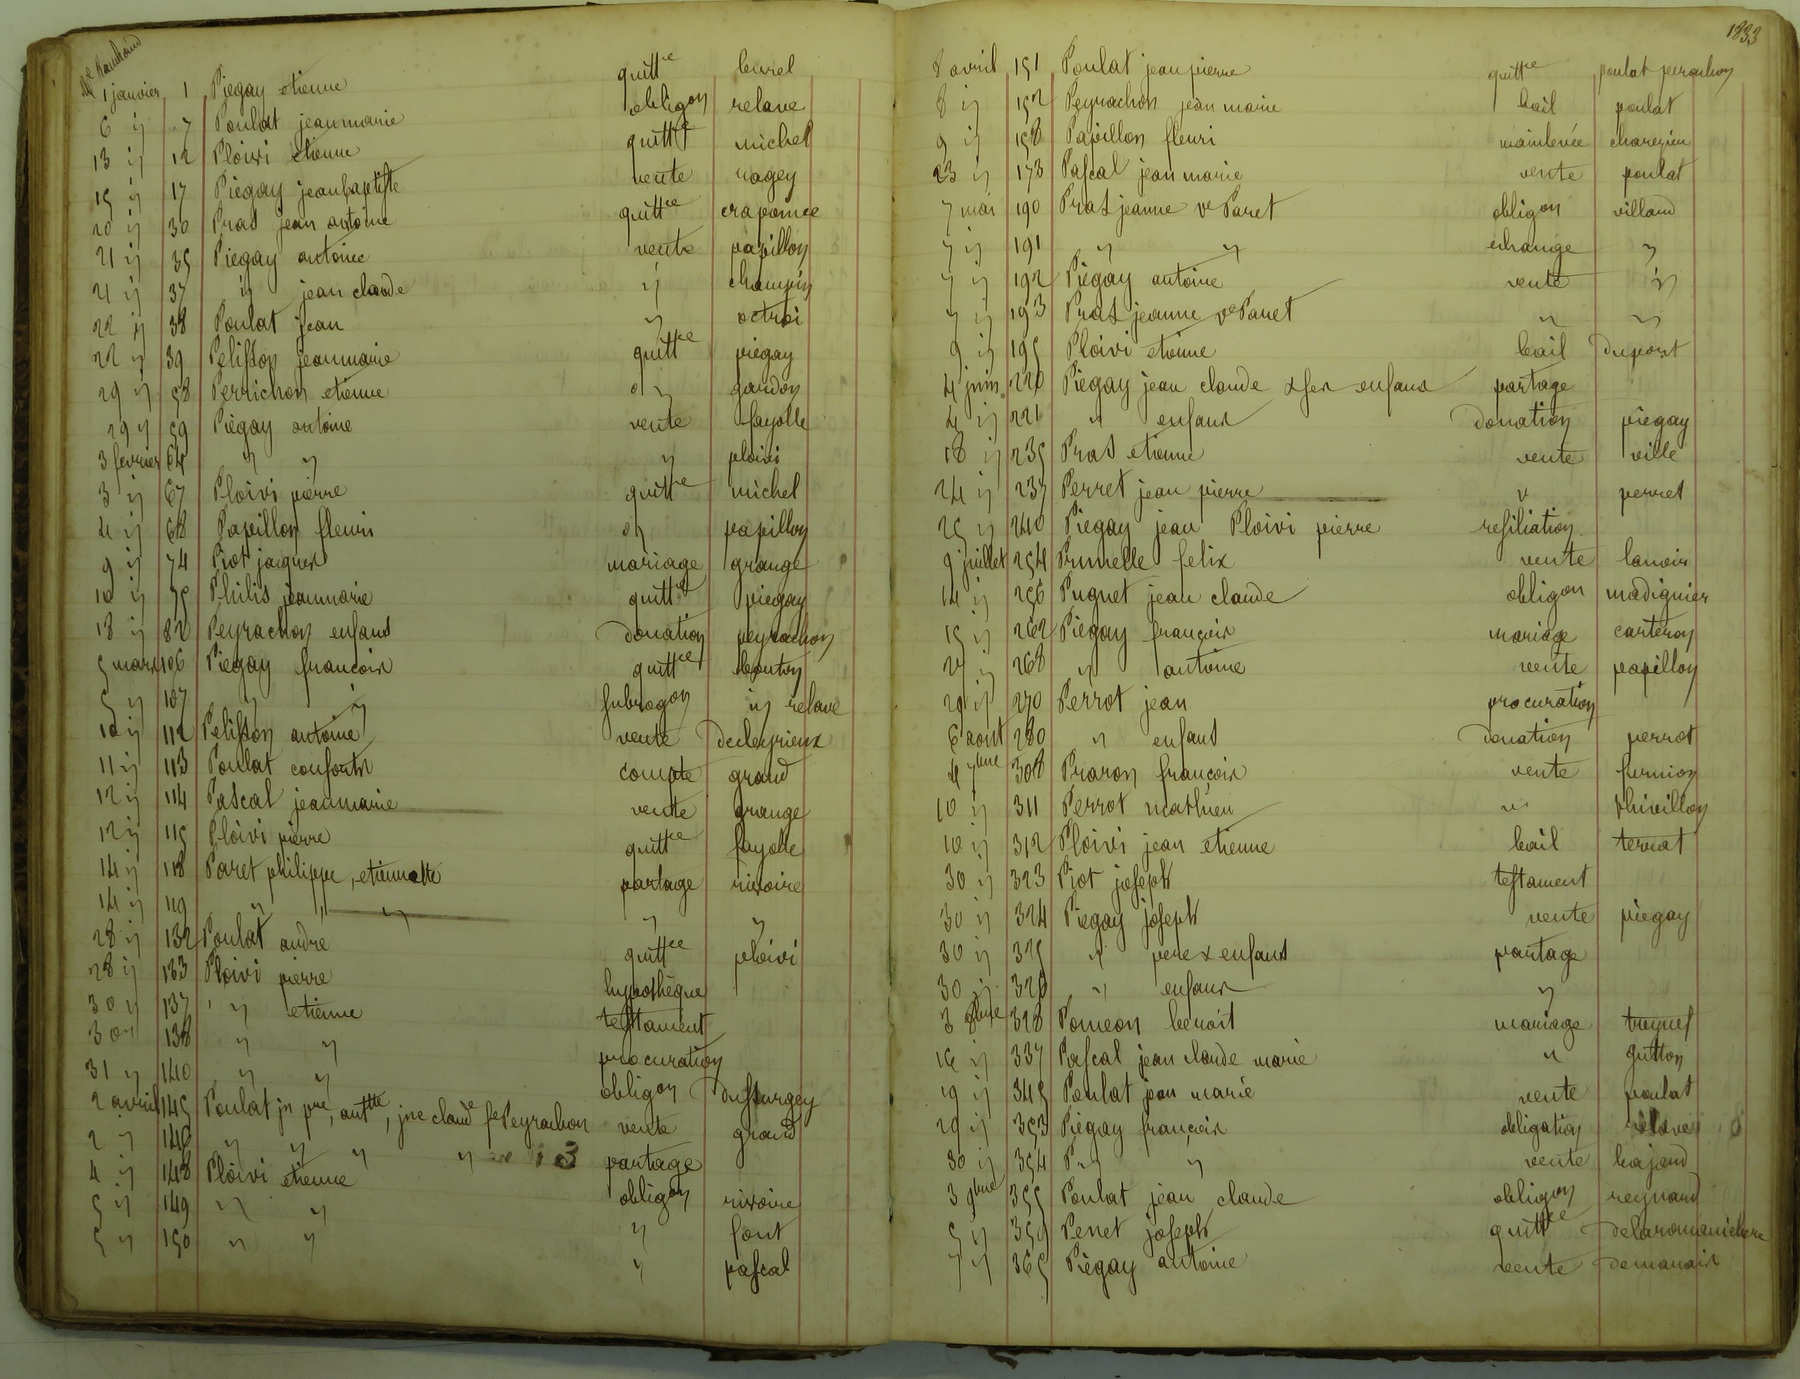 1833
1 janvier 1 Piegay etienne quittce burel
6 ij 7 Poulat jeanmarie obligon relave
13 ij 12 Ploivi etienne quittce michel
15 ij 17 Piegay jeanbaptiste vente ragey
20 ij 30 Pras jean antoine quittce craponne
21 ij 35 Piegay antoine vente papillon
21 ij 37 ij jean claude ij champin
22 ij 38 Poulat jean ij octroi
22 ij 39 Pelisson jeanmarie quittce piegay
29 ij 58 Perrichon etienne ij gaudon
29 ij 59 Piegay antoine vente fayolle
3 fevrier 64 ij ij ij ploivi
3 ij 67 Ploivi pierre quittce michel
4 ij 68 Papillon fleuri ij papillon
9 ij 74 Piot jacques mariage grange
10 ij 75 Philis jeanmarie quittce piegay
18 ij 82 Peyrachon enfans donation peyrachon
5 mars 106 Piegay francois quittce boutry
5 ij 107 ij ij subrogon ij relave
10 ij 112 Pelisson antoine vente decleyrieux
11 ij 113 Poulat consorts compte grand
12 ij 114 Pascal jeanmarie vente grange
12 ij 115 Ploivi pierre quittce fayolle
14 ij 118 Paret philippe, etiennette partage rivoire
14 ij 119 ij ij ij ij
28 ij 132 Poulat andré quittce ploivi
28 ij 133 Ploivi pierre hypothèque
30 ij 137 ij etienne testament
30 ij 138 ij ij procuration
31 ij 140 ij ij obligon dussurgey
2 avril 145 Poulat jn pre, anttte, jne claude fe Peyrachon vente grand
2 ij 146 ij ij ij ij partage
4 ij 148 Ploivi etienne obligon rivoire
5 ij 149 ij ij ij font
5 ij 150 ij ij ij pascal
8 avril 151 Poulat jean pierre quittce poulat peyrachon
8 ij 152 Peyrachon jean marie bail poulat
9 ij 158 Papillon fleuri mainlevée charezieu
23 ij 173 Pascal jean marie vente poulat
7 mai 190 Pras jeanne ve Paret obligon villand
7 ij 191 ij ij echange ij
7 ij 192 Piegay antoine vente ij
7 ij 193 Pras jeanne ve Paret ij ij
9 ij 195 Ploivi etienne bail dupont
4 juin 220 Piegay jean claude & ses enfans partage
4 ij 221 ij enfans donation piegay
18 ij 235 Pras etienne vente ville
24 ij 237 Perret jean pierre ij perret
25 ij 240 Piegay jean Ploivi pierre resiliation
9 juillet 254 Prunelle felix vente lanoir
14 ij 256 Pugnet jean claude obligon madignier
15 ij 262 Piegay françois mariage carteron
ij 268 ij antoine vente papillon
29 ij 270 Perrot jean procuration
6 aout 280 ij enfans donation perrot
4 7bre 308 Praron françois vente furnion
10 ij 311 Perrot mathieu ij thivillon
10 ij 312 Ploivi jean etienne bail ternat
30 ij 323 Piot joseph testament
30 ij 324 Piegay joseph vente piegay
30 ij 325 ij pere & enfans partage
30 ij 326 ij enfans ij
3 8bre 328 Pomeon benoit mariage
16 ij 337 Pascal jean claude marie ij gutton
19 ij 345 Poulat jean marie vente poulat
29 ij 353 Piegay françois obligation relave
30 ij 354 P ij ij vente
3 9bre 355 Poulat jean claude obligon reynard
5 ij 359 Penet joseph quittce delaromanichere
7 ij 365 Piegay antoine vente demanair